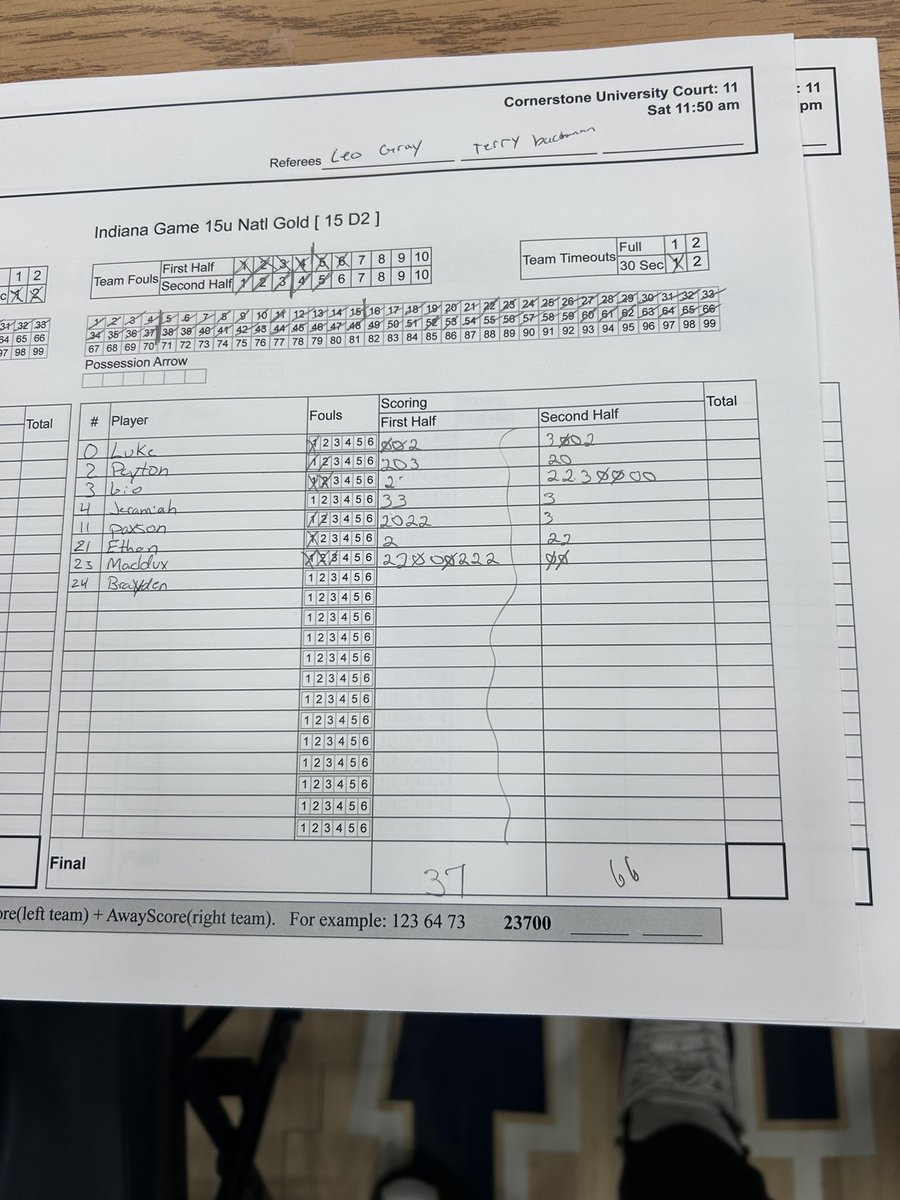 Cornerstone University Court: 11
Sat 11:50 am
: 11
pm
Referees Leo Gray Terry buchanan
Indiana Game 15u Natl Gold [ 15 D2 ]
1 2
1 2
Team Fouls First Half 1 2 3 4 5 6 7 8 9 10
Second Half 1 2 3 4 5 6 7 8 9 10
Team Timeouts Full 1 2
30 Sec 1 2
31 32 33
64 65 66
97 98 99
1 2 3 4 5 6 7 8 9 10 11 12 13 14 15 16 17 18 19 20 21 22 23 24 25 26 27 28 29 30 31 32 33
34 35 36 37 38 39 40 41 42 43 44 45 46 47 48 49 50 51 52 53 54 55 56 57 58 59 60 61 62 63 64 65 66
67 68 69 70 71 72 73 74 75 76 77 78 79 80 81 82 83 84 85 86 87 88 89 90 91 92 93 94 95 96 97 98 99
Possession Arrow
Total
# Player Fouls Scoring Total
First Half Second Half
0 Luke 1 2 3 4 5 6 002 3002
2 Peyton 1 2 3 4 5 6 203 20
3 bio 1 2 3 4 5 6 2 2230000
4 Jeramiah 1 2 3 4 5 6 33 3
11 paxson 1 2 3 4 5 6 2022 3
21 Ethan 1 2 3 4 5 6 2 22
23 Maddux 1 2 3 4 5 6 00
24 Brayden 1 2 3 4 5 6
1 2 3 4 5 6
1 2 3 4 5 6
1 2 3 4 5 6
1 2 3 4 5 6
1 2 3 4 5 6
1 2 3 4 5 6
1 2 3 4 5 6
1 2 3 4 5 6
1 2 3 4 5 6
1 2 3 4 5 6
1 2 3 4 5 6
1 2 3 4 5 6
Final 37 66
ore(left team) + AwayScore(right team). For example: 123 64 73 23700